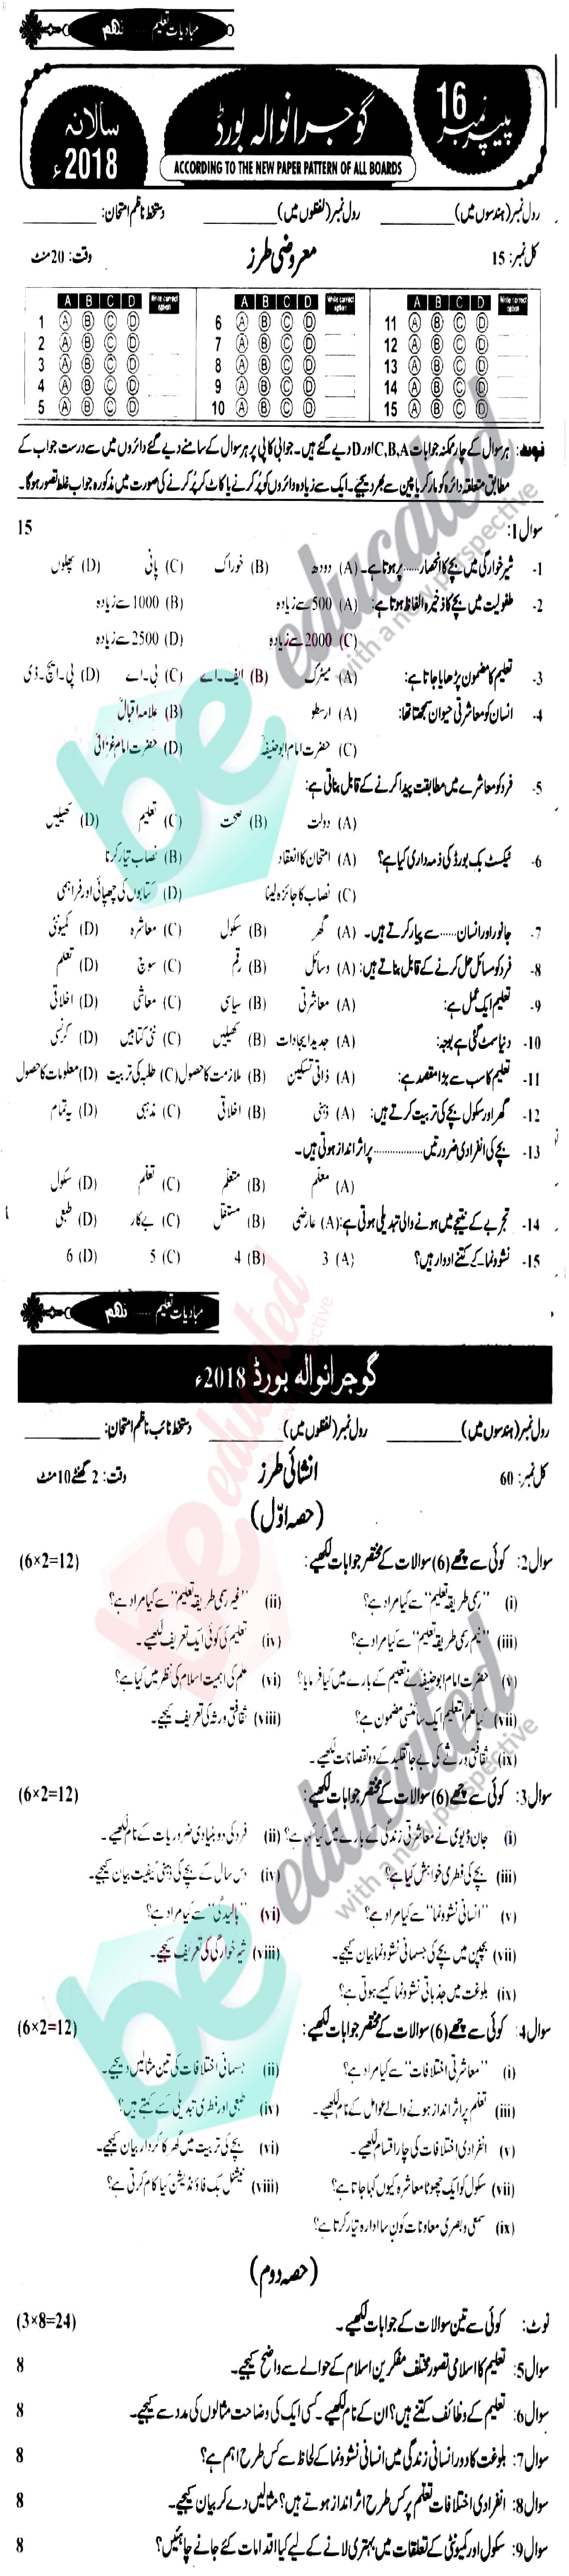 مبادیات تعلیم ..... نہم
پیپر نمبر 16
گوجرانوالہ بورڈ
ACCORDING TO THE NEW PAPER PATTERN OF ALL BOARDS
سالانہ 2018ء
رول نمبر (ہندسوں میں) ________ رول نمبر (لفظوں میں) ________ دستخط ناظم امتحان: ________
کل نمبر: 15 معروضی طرز وقت: 20 منٹ
A B C D Write correct option A B C D Write correct option A B C D Write correct option
1 A B C D 6 A B C D 11 A B C D
2 A B C D 7 A B C D 12 A B C D
3 A B C D 8 A B C D 13 A B C D
4 A B C D 9 A B C D 14 A B C D
5 A B C D 10 A B C D 15 A B C D
نوٹ: ہر سوال کے چار ممکنہ جوابات C,B,A اور D دیے گئے ہیں۔ جوابی کاپی پر ہر سوال کے سامنے دیے گئے دائروں میں سے درست جواب کے
مطابق متعلقہ دائرہ کو مارکر یا پین سے بھر دیجیے۔ ایک سے زیادہ دائروں کو پُر کرنے یا کاٹ کر پُر کرنے کی صورت میں مذکورہ جواب غلط تصور ہوگا۔
سوال 1: 15
1- شیرخوارگی میں بچے کا انحصار ...... پر ہوتا ہے۔ (A) دودھ (B) خوراک (C) پانی (D) پھلوں
2- طفولیت میں بچے کا ذخیرہ الفاظ ہوتا ہے: (A) 500 سے زیادہ (B) 1000 سے زیادہ
(C) 2000 سے زیادہ (D) 2500 سے زیادہ
3- تعلیم کا مضمون پڑھایا جاتا ہے: (A) میٹرک (B) ایف۔اے (C) بی۔اے (D) پی۔ایچ۔ڈی
4- انسان کو معاشرتی حیوان سمجھتا تھا: (A) ارسطو (B) علامہ اقبالؒ
(C) حضرت امام ابوحنیفہؒ (D) حضرت امام غزالیؒ
5- فرد کو معاشرے میں مطابقت پیدا کرنے کے قابل بناتی ہے:
(A) دولت (B) صحت (C) تعلیم (D) کھیلیں
6- ٹیکسٹ بک بورڈ کی ذمہ داری کیا ہے؟ (A) امتحان کا انعقاد (B) نصاب تیار کرنا
(C) نصاب کا جائزہ لینا (D) کتابوں کی چھپائی اور فراہمی
7- جانور اور انسان ...... سے پیار کرتے ہیں۔ (A) گھر (B) سکول (C) معاشرہ (D) کمیونٹی
8- فرد کو مسائل حل کرنے کے قابل بناتے ہیں: (A) وسائل (B) رقم (C) سوچ (D) تعلم
9- تعلیم ایک عمل ہے: (A) معاشرتی (B) سیاسی (C) معاشی (D) اخلاقی
10- دنیا سمٹ گئی ہے بوجہ: (A) جدید ایجادات (B) کھیلیں (C) نئی کتابیں (D) کرنسی
11- تعلیم کا سب سے بڑا مقصد ہے: (A) ذاتی تسکین (B) ملازمت کا حصول (C) طلبہ کی تربیت (D) معلومات کا حصول
12- گھر اور سکول بچے کی تربیت کرتے ہیں: (A) ذہنی (B) اخلاقی (C) مذہبی (D) یہ تمام
13- بچے کی انفرادی ضرورتیں ................ پر اثرانداز ہوتی ہیں۔
(A) معلم (B) متعلم (C) تعلم (D) سکول
14- تجربے کے نتیجے میں ہونے والی تبدیلی ہوتی ہے: (A) عارضی (B) مستقل (C) بے کار (D) طبعی
15- نشوونما کے کتنے ادوار ہیں؟ (A) 3 (B) 4 (C) 5 (D) 6
مبادیات تعلیم ..... نہم
گوجرانوالہ بورڈ 2018ء
رول نمبر (ہندسوں میں) ________ رول نمبر (لفظوں میں) ________ دستخط نائب ناظم امتحان: ________
کل نمبر: 60 انشائی طرز وقت: 2 گھنٹے 10 منٹ
(حصہ اوّل)
سوال 2: کوئی سے چھے (6) سوالات کے مختصر جوابات لکھیے: (6×2=12)
(i) ”رسمی طریقہ تعلیم“ سے کیا مراد ہے؟ (ii) ”غیر رسمی طریقہ تعلیم“ سے کیا مراد ہے؟
(iii) ”نیم رسمی طریقہ تعلیم“ سے کیا مراد ہے؟ (iv) تعلیم کی کوئی ایک تعریف لکھیے۔
(v) حضرت امام ابوحنیفہؒ نے تعلیم کے بارے میں کیا فرمایا؟ (vi) علم کی اہمیت اسلام کی نظر میں کیا ہے؟
(vii) کیا علم التعلیم ایک سائنسی مضمون ہے؟ (viii) ثقافتی ورثہ کی تعریف کیجیے۔
(ix) ثقافتی ورثے کی بے جا تقلید کے دو نقصانات لکھیے۔
سوال 3: کوئی سے چھے (6) سوالات کے مختصر جوابات لکھیے: (6×2=12)
(i) جان ڈیوی نے معاشرتی زندگی کے بارے میں کیا کہا ہے؟ (ii) فرد کی دو بنیادی ضروریات کے نام لکھیے۔
(iii) بچے کی فطری خواہش کیا ہے؟ (iv) دس سال کے بچے کی ذہنی کیفیت بیان کیجیے۔
(v) ”انسانی نشوونما“ سے کیا مراد ہے؟ (vi) ”بالیدگی“ سے کیا مراد ہے؟
(vii) بچپن میں بچے کی جسمانی نشوونما بیان کیجیے۔ (viii) شیرخوارگی کی تعریف کیجیے۔
(ix) بلوغت میں جذباتی نشوونما کیسے ہوتی ہے؟
سوال 4: کوئی سے چھے (6) سوالات کے مختصر جوابات لکھیے: (6×2=12)
(i) ”معاشرتی اختلافات“ سے کیا مراد ہے؟ (ii) جسمانی اختلافات کی تین مثالیں دیجیے۔
(iii) تعلم پر اثرانداز ہونے والے عوامل کے نام لکھیے۔ (iv) طبعی اور فطری تبدیلی کسے کہتے ہیں؟
(v) انفرادی اختلافات کی چار اقسام لکھیے۔ (vi) بچے کی تربیت میں گھر کا کردار بیان کیجیے۔
(vii) سکول کو ایک چھوٹا معاشرہ کیوں کہا جاتا ہے؟ (viii) نیشنل بک فاؤنڈیشن کیا کام کرتی ہے؟
(ix) سمعی و بصری معاونات کون سا ادارہ تیار کرتا ہے؟
(حصہ دوم)
نوٹ: کوئی سے تین سوالات کے جوابات لکھیے۔ (3×8=24)
سوال 5: تعلیم کا اسلامی تصور مختلف مفکرین اسلام کے حوالے سے واضح کیجیے۔ 8
سوال 6: تعلیم کے وظائف کتنے ہیں؟ ان کے نام لکھیے۔ کسی ایک کی وضاحت مثالوں کی مدد سے کیجیے۔ 8
سوال 7: بلوغت کا دور انسانی زندگی میں انسانی نشوونما کے لحاظ سے کس طرح اہم ہے؟ 8
سوال 8: انفرادی اختلافات تعلم پر کس طرح اثرانداز ہوتے ہیں؟ مثالیں دے کر بیان کیجیے۔ 8
سوال 9: سکول اور کمیونٹی کے تعلقات میں بہتری لانے کے لیے کیا اقدامات کئے جانے چاہئیں؟ 8
be educated
with a new perspective
be educated
be educated
with a new perspective